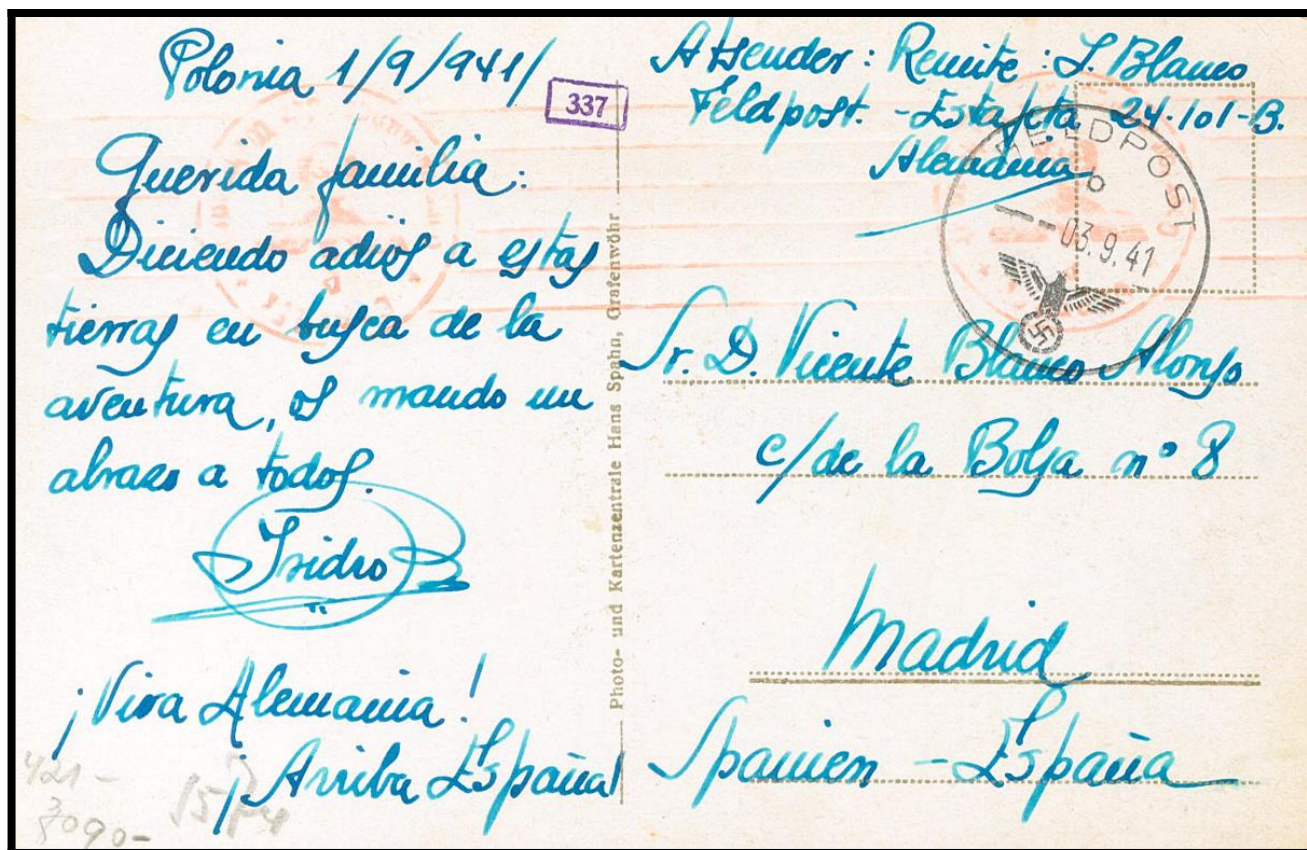 Polonia 1/9/941/
337
Querida familia:
Diciendo adios a estas
tierras en busca de la
aventura, os mando un
abrazo a todos.
Isidro B
¡Viva Alemania!
¡Arriba España!
421-
8090-
Photo- und Kartenzentrale Hans Spahn, Grafenwöhr
Absender: Remite: I. Blanco
Feldpost. - Estafeta 24.101-B.
Alemania
FELDPOST
b
--03.9.41
Sr. D. Vicente Blanco Alonso
c/ de la Bolsa nº 8
Madrid
Spanien - España